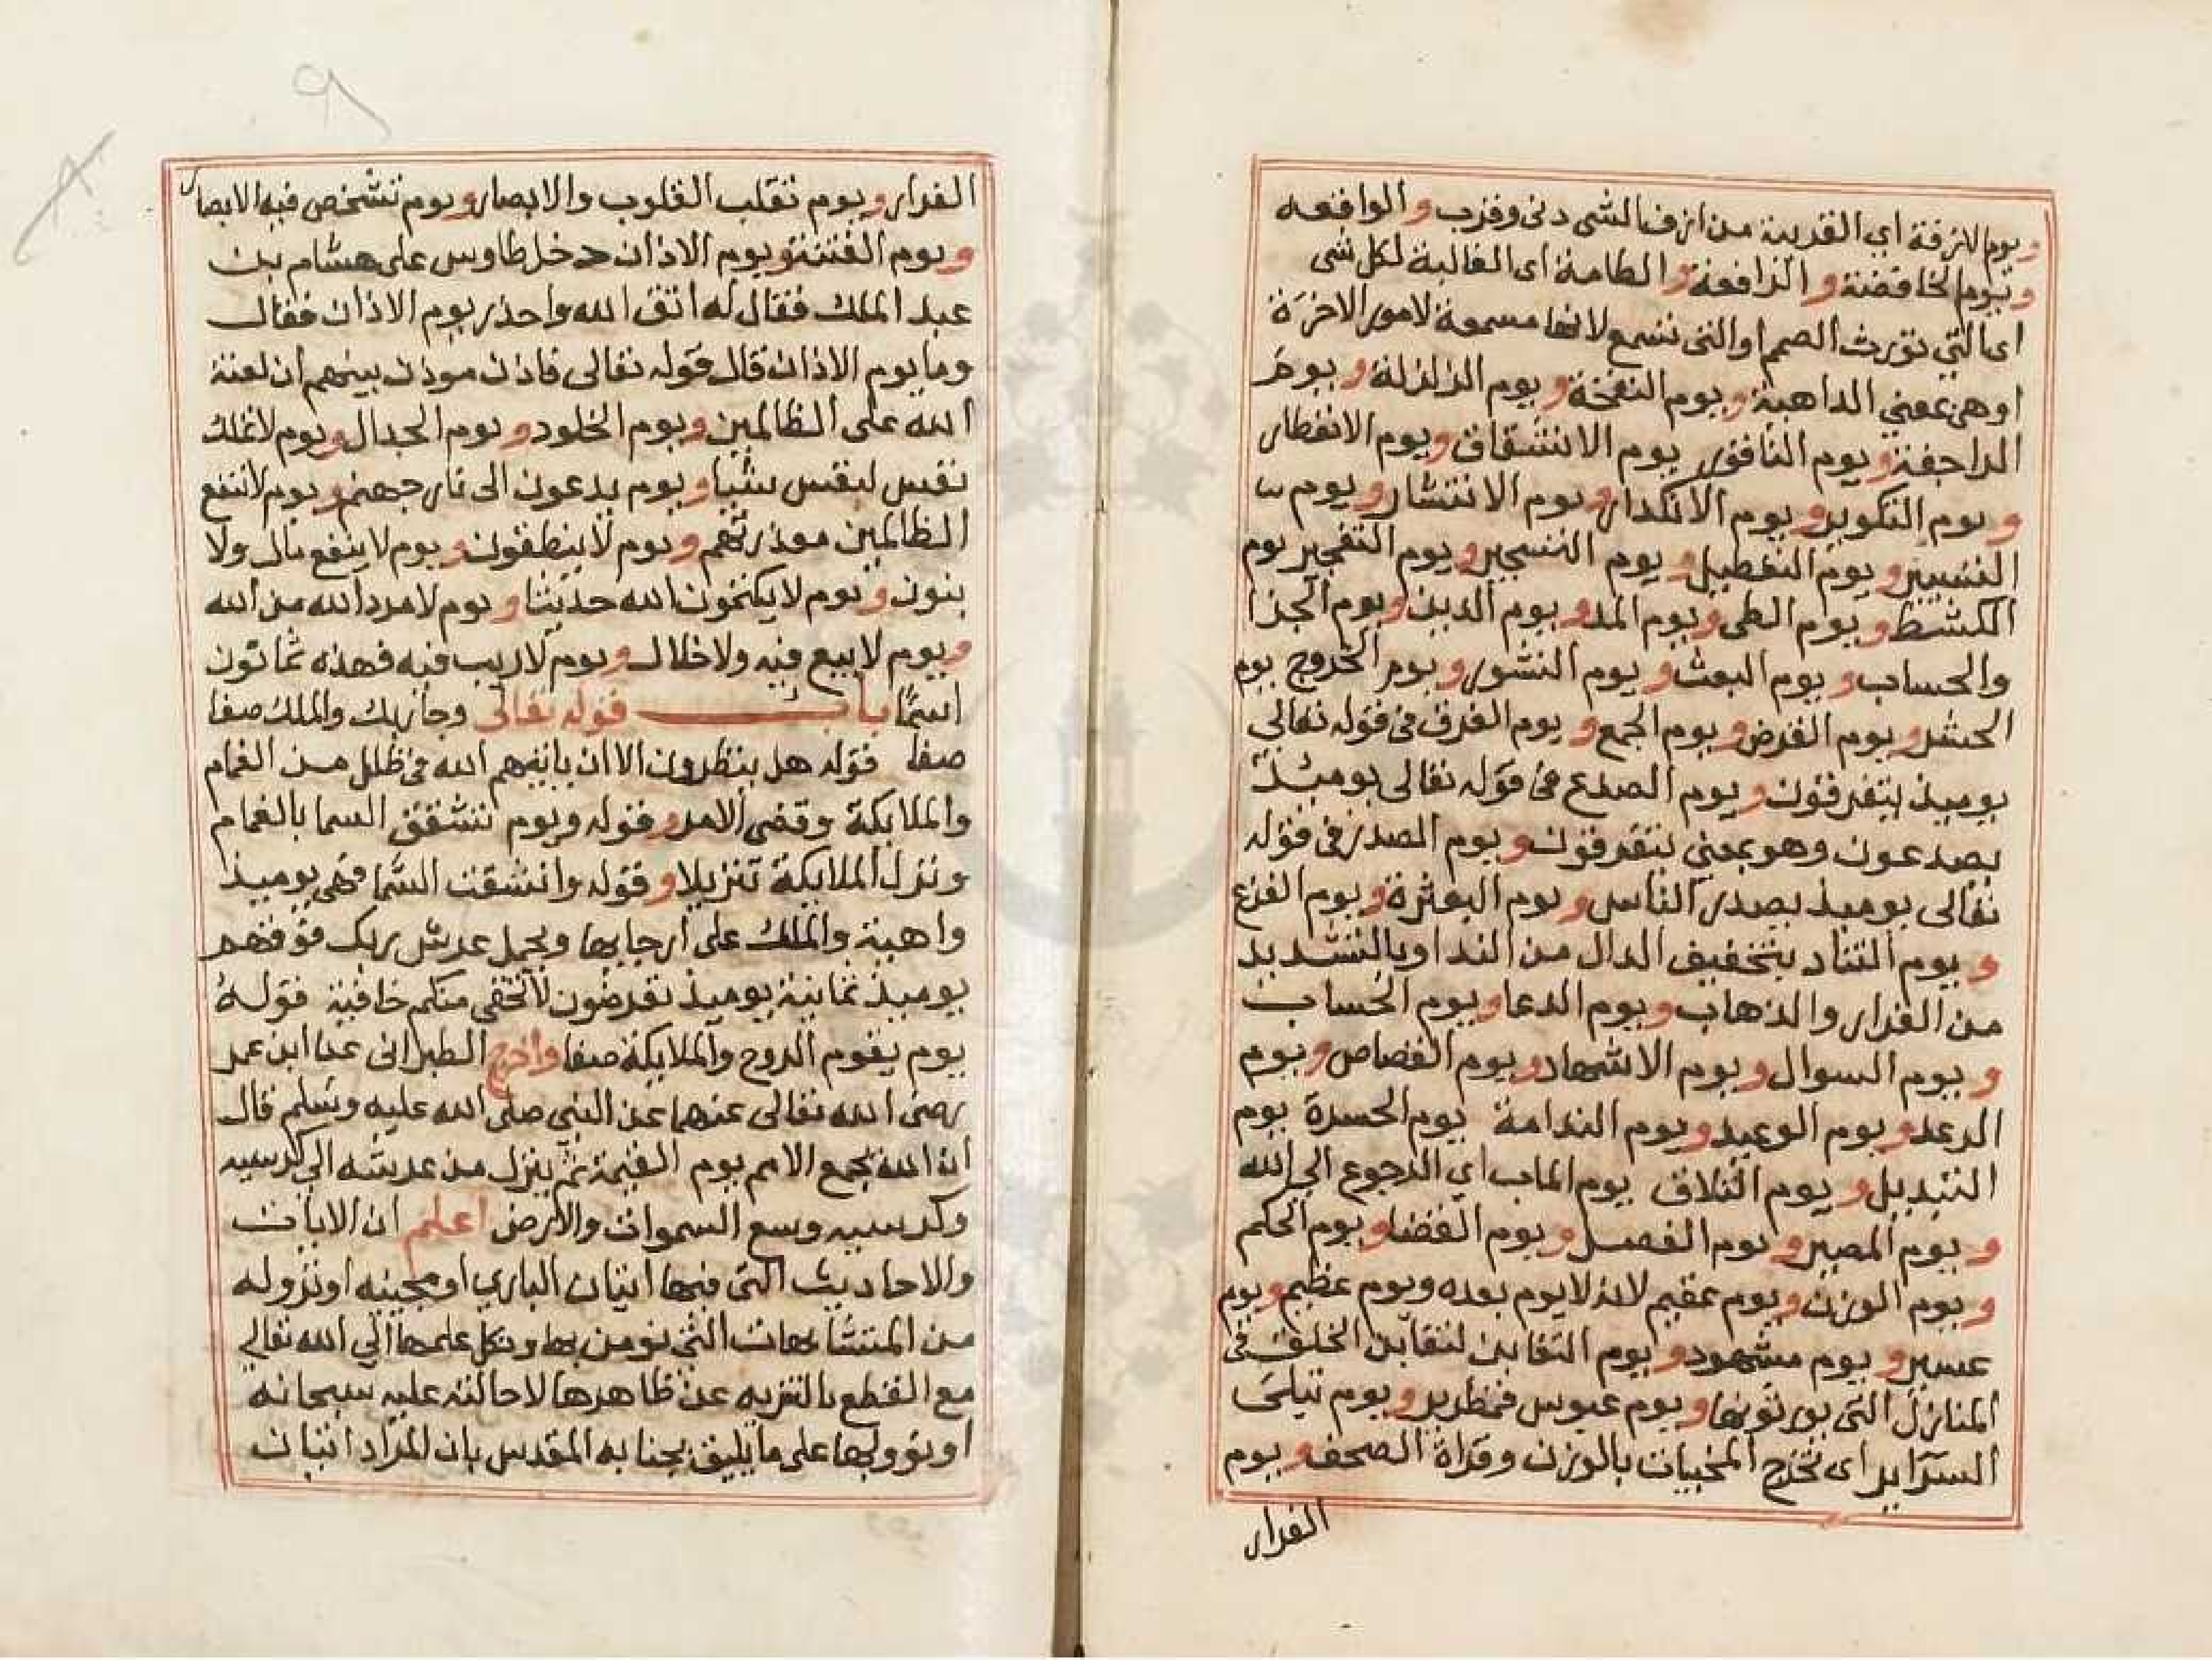 ويوم الازفة اي القريبة من ازف الشي دنى وقرب والواقعه
ويوم الخافضة والرافعة والطامة اى الغالبة لكل شى
اى التي تورث الصمم او التى تسمع لانها مسمعة لامور الاخرة
او هى بمعنى الداهية ويوم النفخة ويوم الزلزلة ويوم
الراجفة ويوم الناقور يوم الانشقاق ويوم الانفطار
ويوم التكوير ويوم الانكدار ويوم الانتشار ويوم
التسيير ويوم التعطيل ويوم التسجير ويوم التفجير يوم
الكشط ويوم الطى ويوم المد ويوم الدين ويوم الجزا
والحساب ويوم البعث ويوم النشور ويوم الخروج يوم
الحشر ويوم العرض ويوم الجمع ويوم الفرق فى قوله تعالى
يوميذ يتفرقون ويوم الصدع فى قوله تعالى يوميذ
يصدعون وهو بمعني تتفرقون ويوم الصدر فى قوله
تعالى يوميذ يصدر الناس ويوم البعثرة ويوم الفزع
ويوم التناد بتخفيف الدال من الندا وبالتشديد
من الفرار والذهاب ويوم الدعا ويوم الحساب
ويوم السوال ويوم الاشهاد ويوم القصاص ويوم
الرعد ويوم الوعيد ويوم الندامة يوم الحسرة يوم
التبديل ويوم التلاق يوم الماب اي الرجوع الى الله
ويوم المصير ويوم الفصل ويوم القضا ويوم الحكم
ويوم الوزن ويوم عقيم لانه لايوم بعده ويوم عظيم ويوم
عسير ويوم مشهود ويوم التغابن لتغابن الخلق فى
المنازل التى يورثونها ويوم عبوس قمطرير ويوم تبلى
السراير اى تخرج المخبيات بالوزن وقراة الصحف ويوم
الفرار
٩
٨
الفرار ويوم تقلب القلوب والابصار ويوم تشخص فيه الابصار
ويوم الفتنة ويوم الاذان دخل طاوس على هشام بن
عبد الملك فقال له اتق الله واحذر يوم الاذان فقال
وما يوم الاذان قال قوله تعالى فاذن موذن بينهم ان لعنة
الله على الظالمين ويوم الخلود ويوم الجدال ويوم لاتملك
نفس لنفس شيا ويوم يدعون الى نار جهنم ويوم لاتنفع
الظالمين معذرتهم ويوم لا ينطقون ويوم لا ينفع مال ولا
بنون ويوم لا يكتمون الله حديثا ويوم لا مرد الله من الله
ويوم لا بيع فيه ولا خلال ويوم لا ريب فيه فهذه ثمانون
اسما باب قوله تعالى وجا ربك والملك صفا
صفا قوله هل ينظرون الا ان ياتيهم الله فى ظلل من الغمام
والملايكة وقضى الامر وقوله ويوم تتشقق السما بالغمام
ونزل الملايكة تنزيلا وقوله وانشقت السما فهى يوميذ
واهية والملك على ارجايها ويحمل عرش ربك فوقهم
يوميذ ثمانية يوميذ تعرضون لا تخفى منكم خافية قوله
يوم يقوم الروح والملايكة صفا واخرج الطبرانى عن ابن عمر
رضى الله تعالى عنهما عن النبي صلى الله عليه وسلم قال
ان الله يجمع الامم يوم القيمة ثم ينزل من عرشه الى كرسيه
وكرسيه وسع السموات والارض اعلم ان الايات
والاحاديث التى فيها اتيان الباري او مجيئه او نزوله
من المتشابهات التى نومن بها ونكل علمها الي الله تعالي
مع القطع بالتنزيه عن ظاهرها لاحالته عليه سبحانه
او نوولها على ما يليق بجنابه المقدس بان المراد اتيان